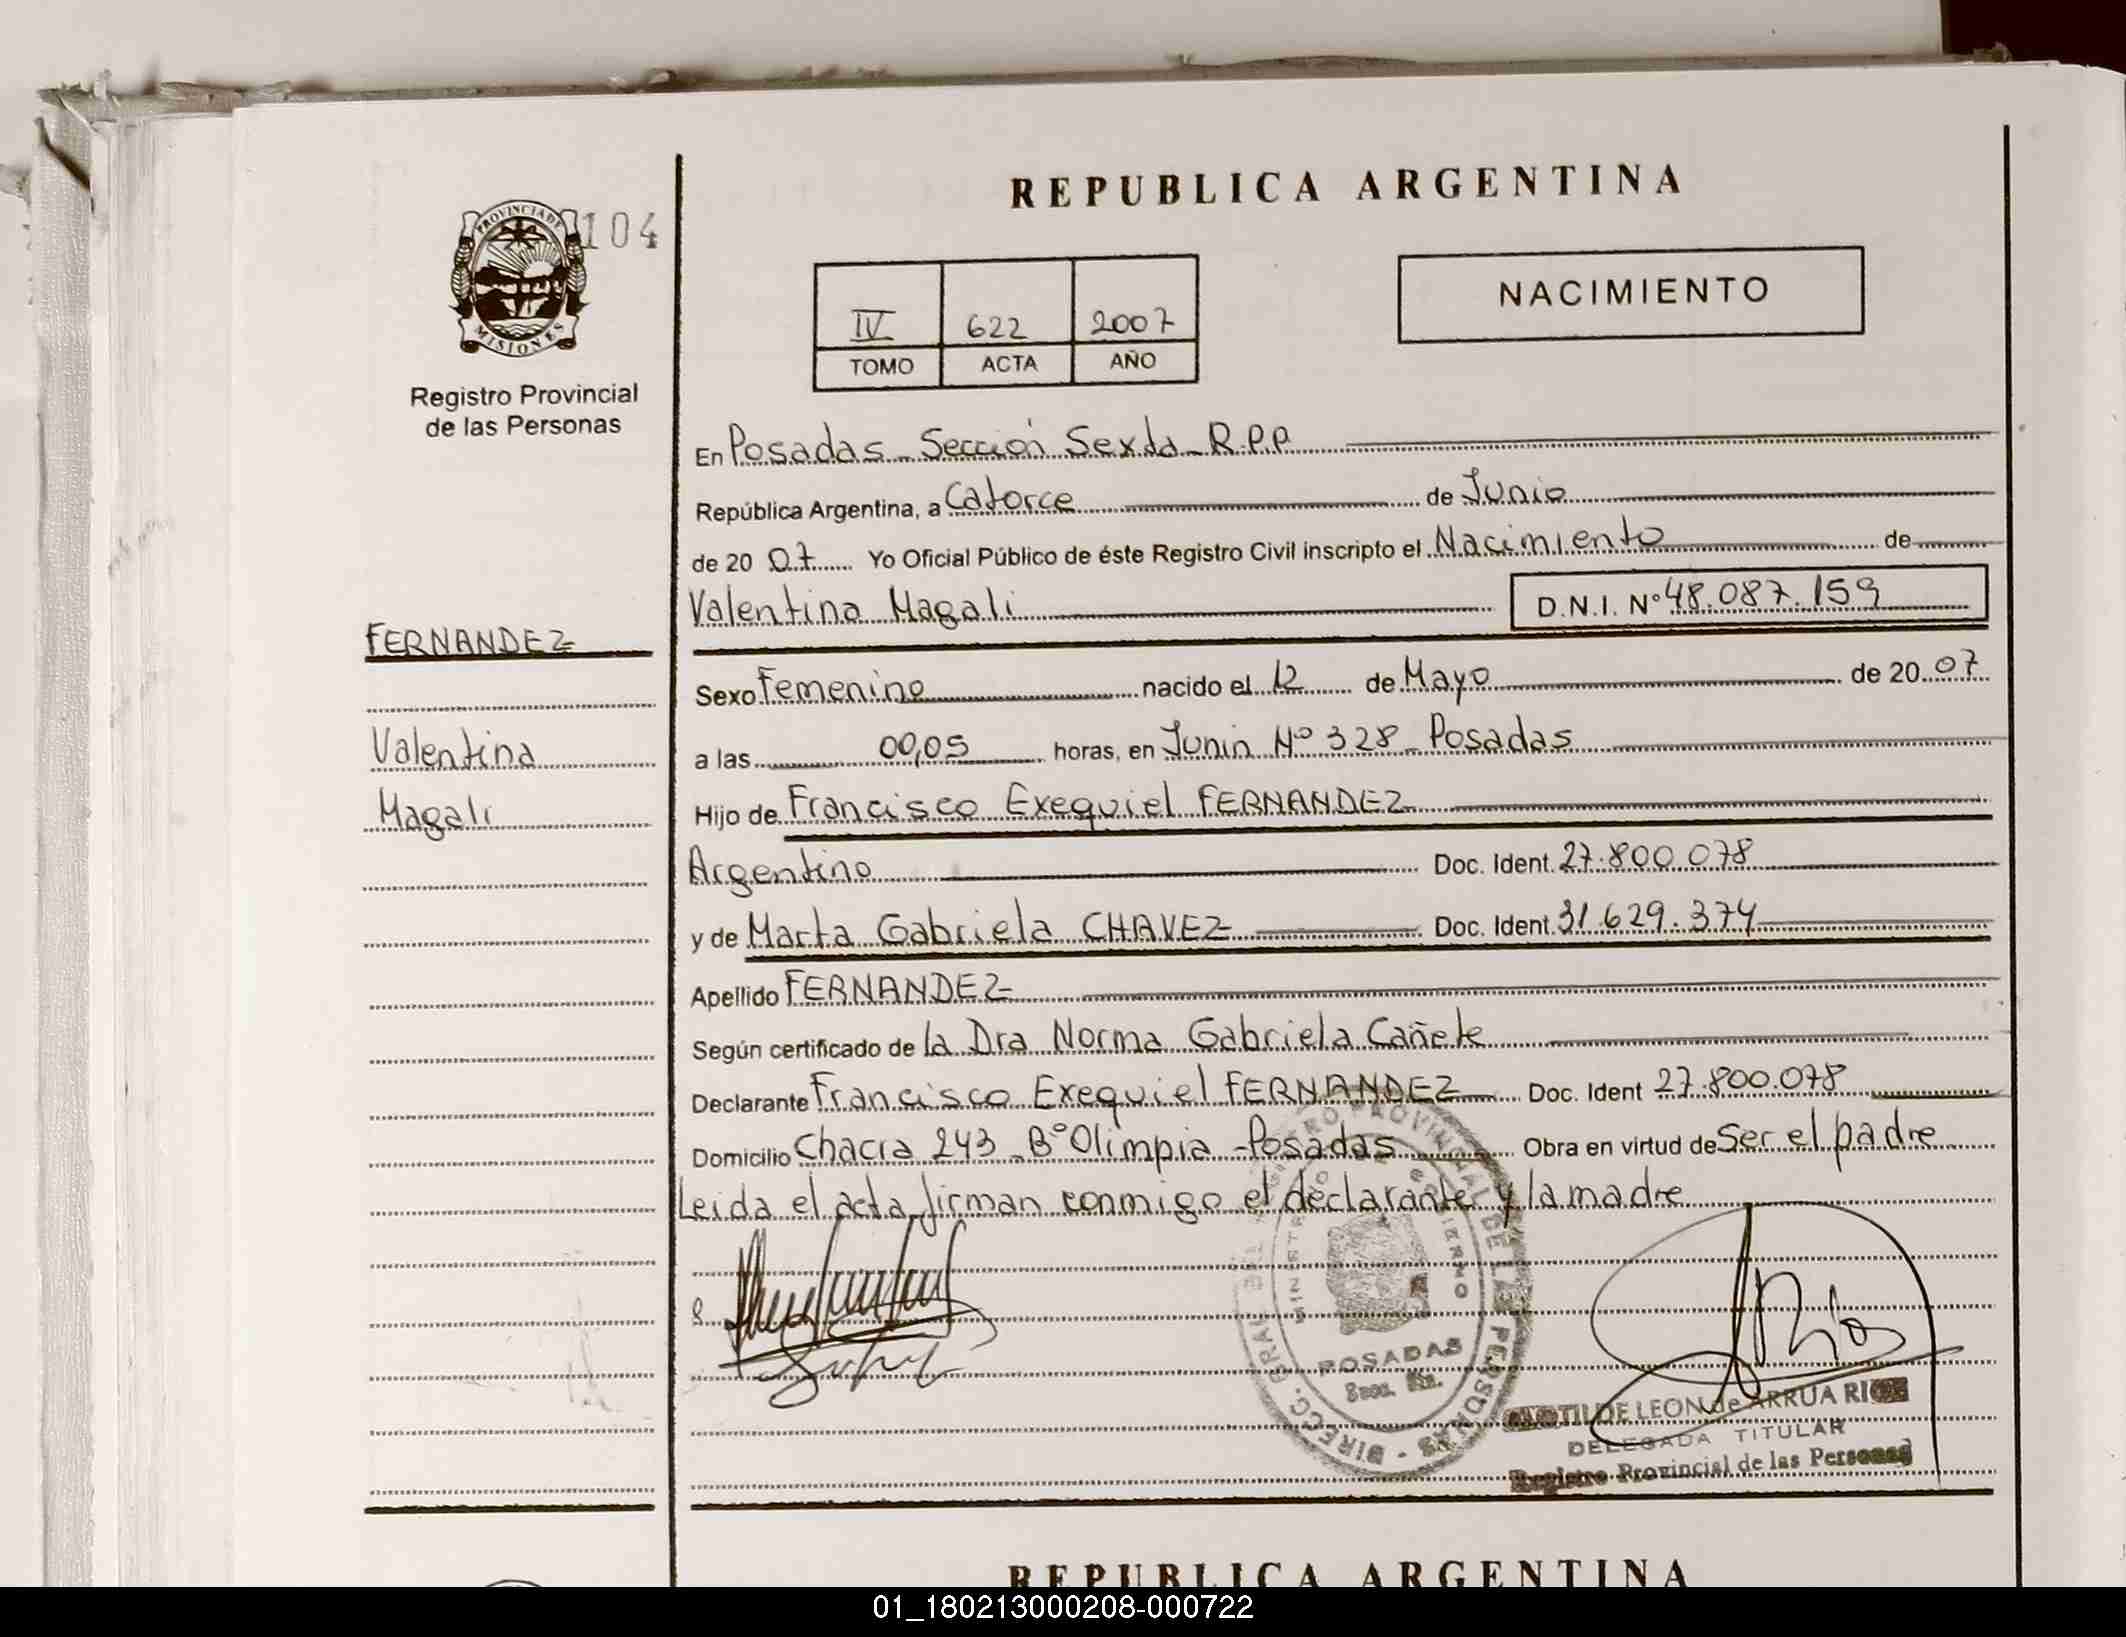 REPUBLICA ARGENTINA
PROVINCIA DE
MISIONES
104
Registro Provincial
de las Personas
IV 622 2007
TOMO ACTA AÑO
NACIMIENTO
En Posadas - Sección Sexta - R.P.P.
República Argentina, a Catorce de Junio
de 20 07 Yo Oficial Público de éste Registro Civil inscripto el Nacimiento de
Valentina Magali D.N.I. Nº 48.087.159
FERNANDEZ
Valentina
Magali
Sexo Femenino nacido el 12 de Mayo de 20 07
a las 00,05 horas, en Junin Nº 328 - Posadas
Hijo de Francisco Exequiel FERNANDEZ
Argentino Doc. Ident. 27.800.078
y de Marta Gabriela CHAVEZ Doc. Ident. 31.629.374
Apellido FERNANDEZ
Según certificado de la Dra Norma Gabriela Cañete
Declarante Francisco Exequiel FERNANDEZ Doc. Ident 27.800.078
Domicilio Chacra 243 - Bº Olimpia - Posadas Obra en virtud de Ser el padre
Leida el acta firman conmigo el declarante y la madre
DIRECC. GRAL. DEL REGISTRO PROVINCIAL DE LAS PERSONAS
MINISTERIO GOBIERNO
POSADAS
Rios
CLOTILDE LEON de ARRUA RIOS
DELEGADA TITULAR
Registro Provincial de las Personas
REPUBLICA ARGENTINA
01_180213000208-000722